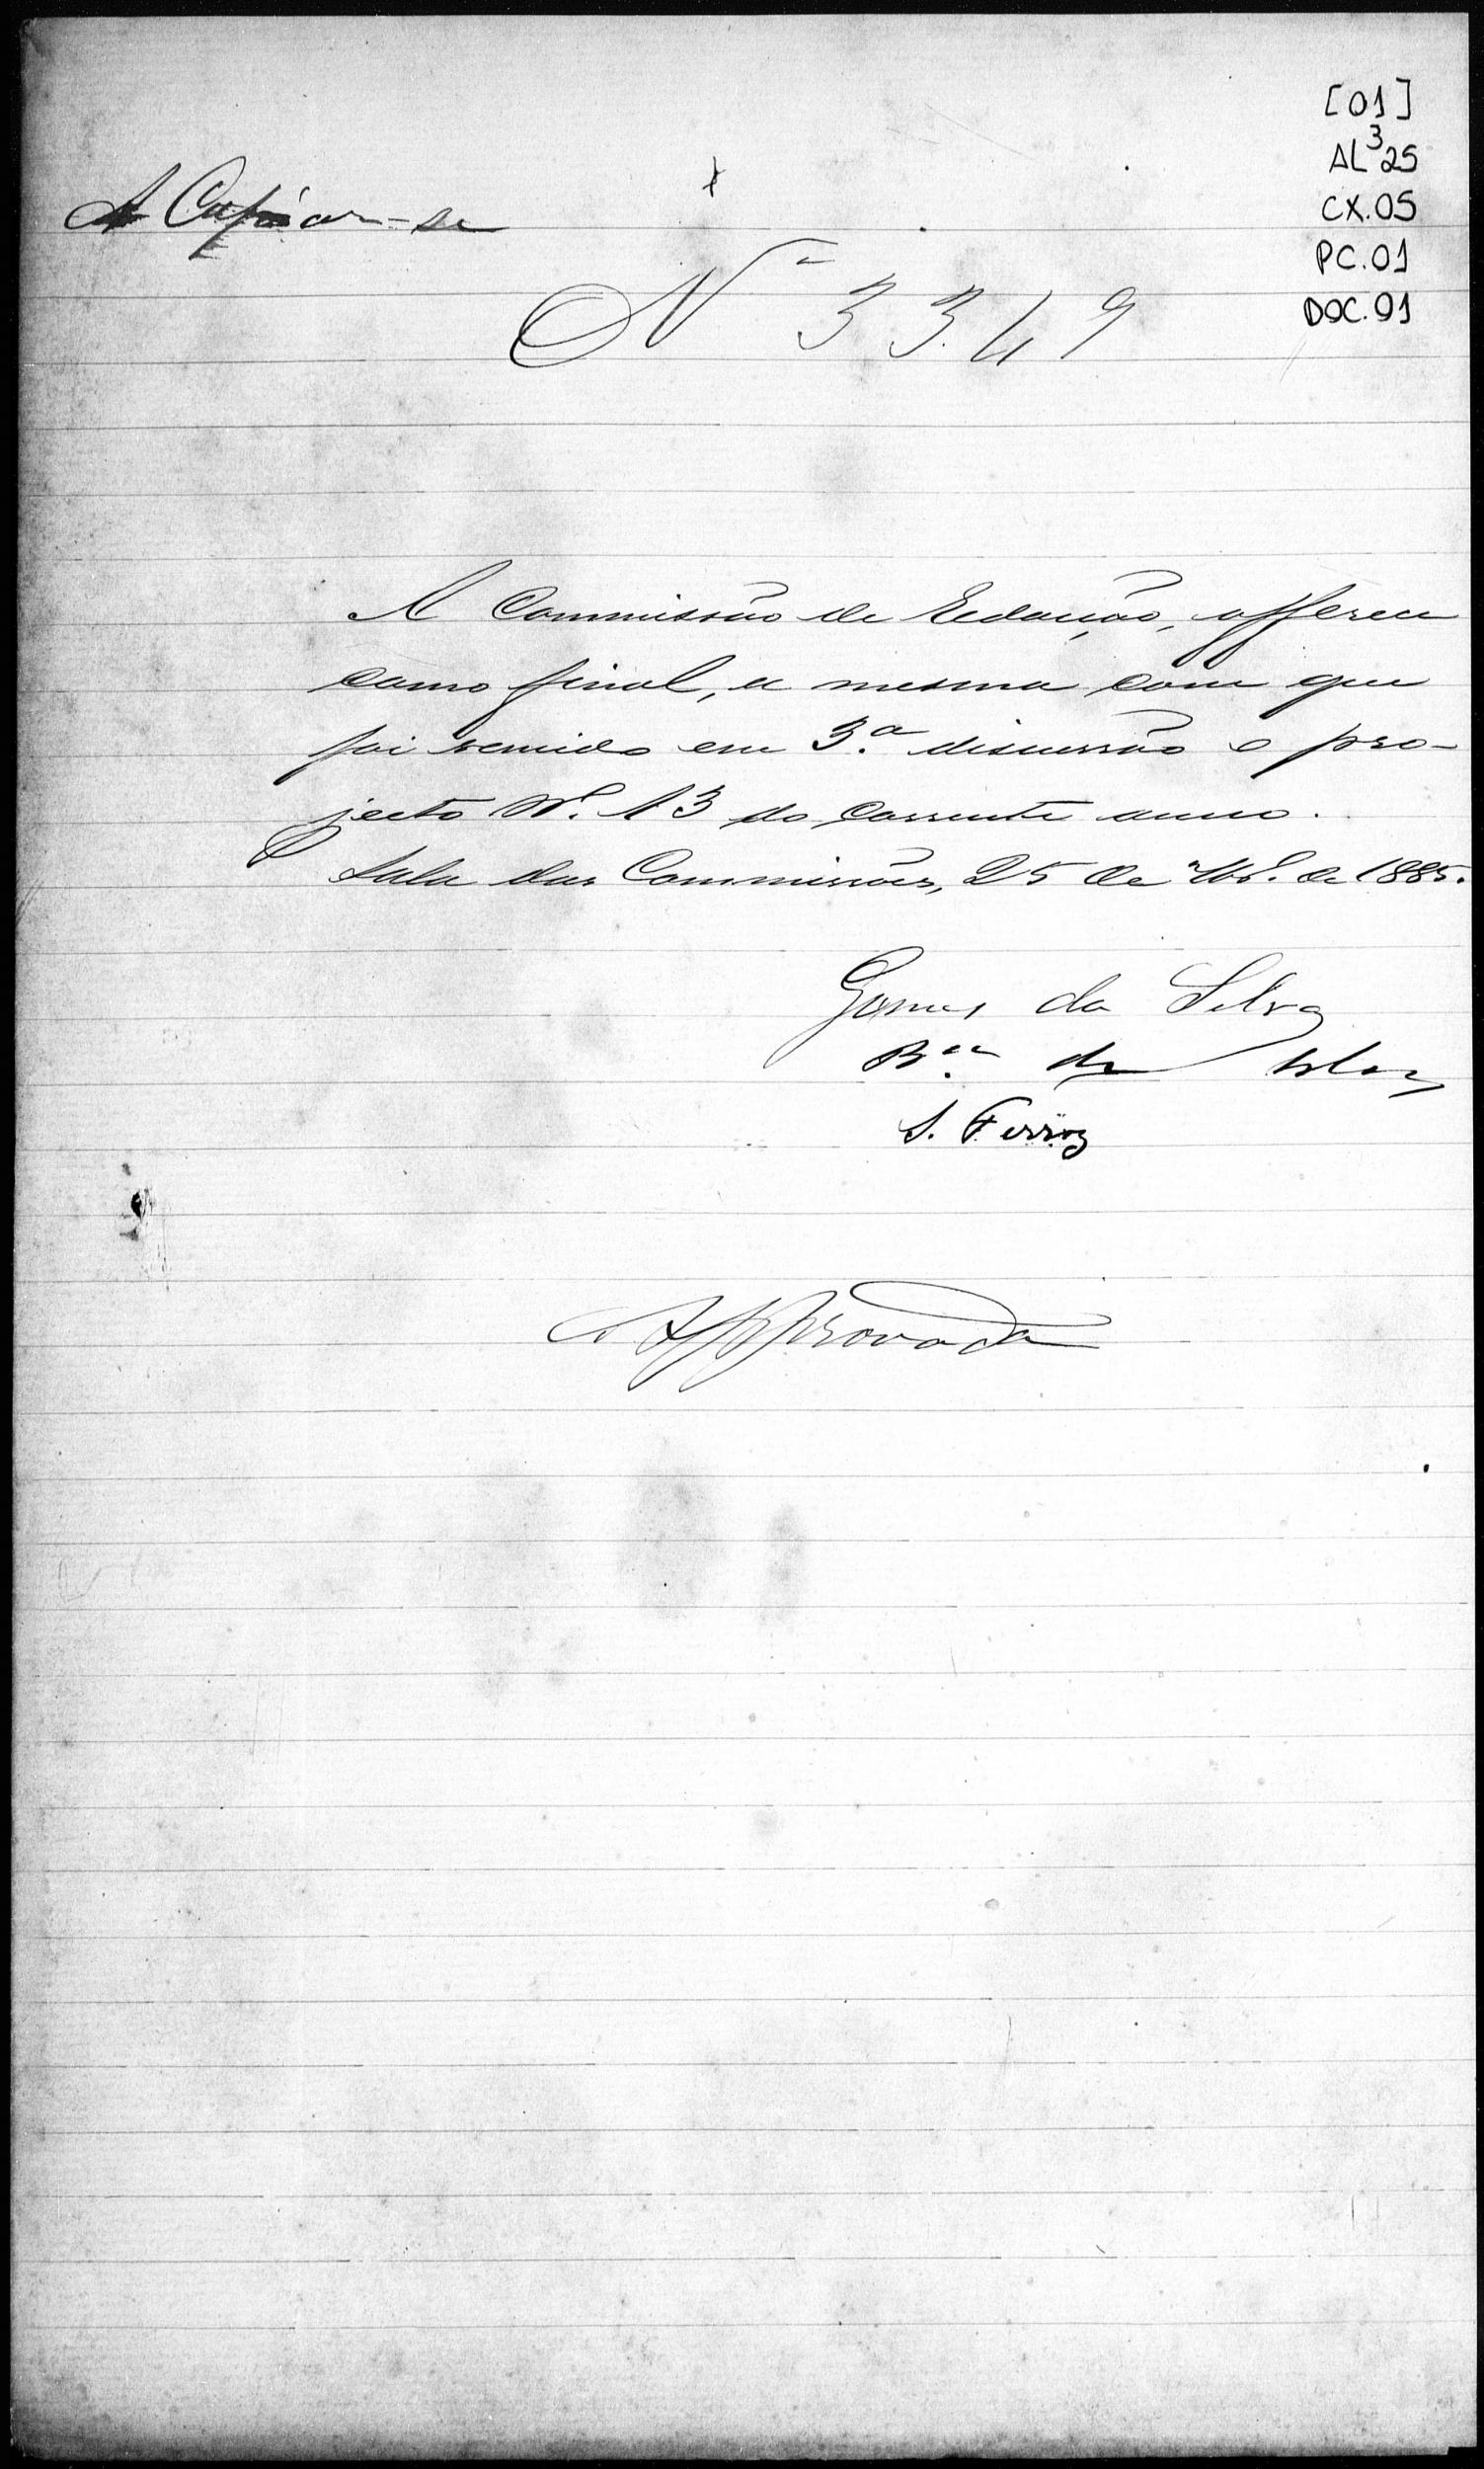 [01]
AL³25
CX.05
PC.01
DOC.01
A Copiar-se
Nº 3349
A Commissão de Redacção, offerece
como final, a mesma com que
foi vencido em 3.ª discussão o pro-
jecto Nº. 13 do corrente anno.
Sala das Commissões, 25 de de 1885.
Gomes da Silva
Bᵃᵒ de
S. Ferraz
Approvada